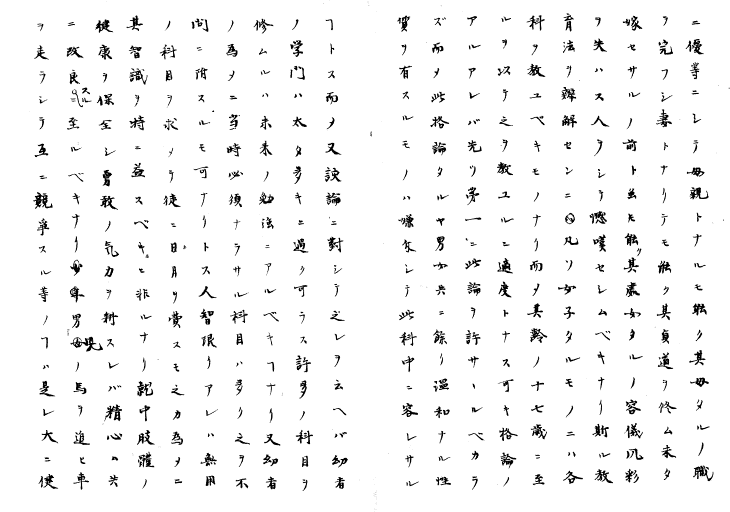 ニ優等ニシテ母親トナルモ能ク其母タルノ職
ヲ完フシ妻トナリテモ能ク其貞道ヲ修ム未タ
嫁セサルノ前ト雖モ能ク其處女タルノ容儀風彩
ヲ失ハス人ヲシテ感嘆セシムベキナリ斯ル教
育法ヲ辨解センニ凡ソ女子タルモノニハ各
科ヲ教ユベキモノナリ而メ其齢ノ十七歳ニ至
ルヲ以テ之ヲ教ユルニ適度トナス可キ格論ノ
アルアレバ先ツ第一ニ此論ヲ許サヾルベカラ
ズ而メ此格論タルヤ男女共ニ餘リ温和ナル性
質ヲ有スルモノハ嫌忌シテ此科中ニ容レサル
フトス而メ又該論ニ對シテ之レヲ云ヘバ幼者
ノ学門ハ太タ多キニ過ク可ラス許多ノ科目ヲ
修ムルハ未来ノ勉強ニアルベキフナリ又幼者
ノ為メニ当時必須ナラサル科目ハ多クハ之ヲ不
問ニ附スルモ可ナリトス人智限リアレハ無用
ノ科目ヲ求メテ徒ニ日月ヲ費スモ之カ為メニ
其智識ヲ特ニ益スベキニ非ルナリ就中肢體ノ
健康ヲ保全シ勇敢ノ気力ヲ術スレバ精心モ共
ニ改良スルニ至ルベキナリ少年男児ノ馬ヲ追ヒ車
ヲ走ラシテ互ニ競爭スル等ノフハ是レ大ニ健